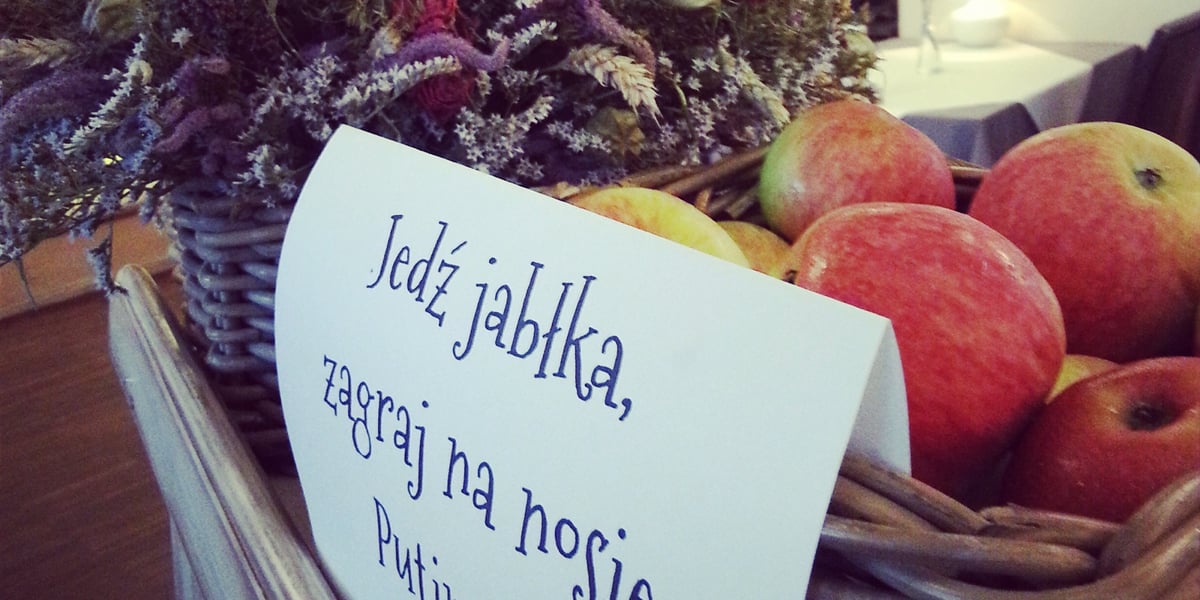 Jedź jabłka,
zagraj na nosie